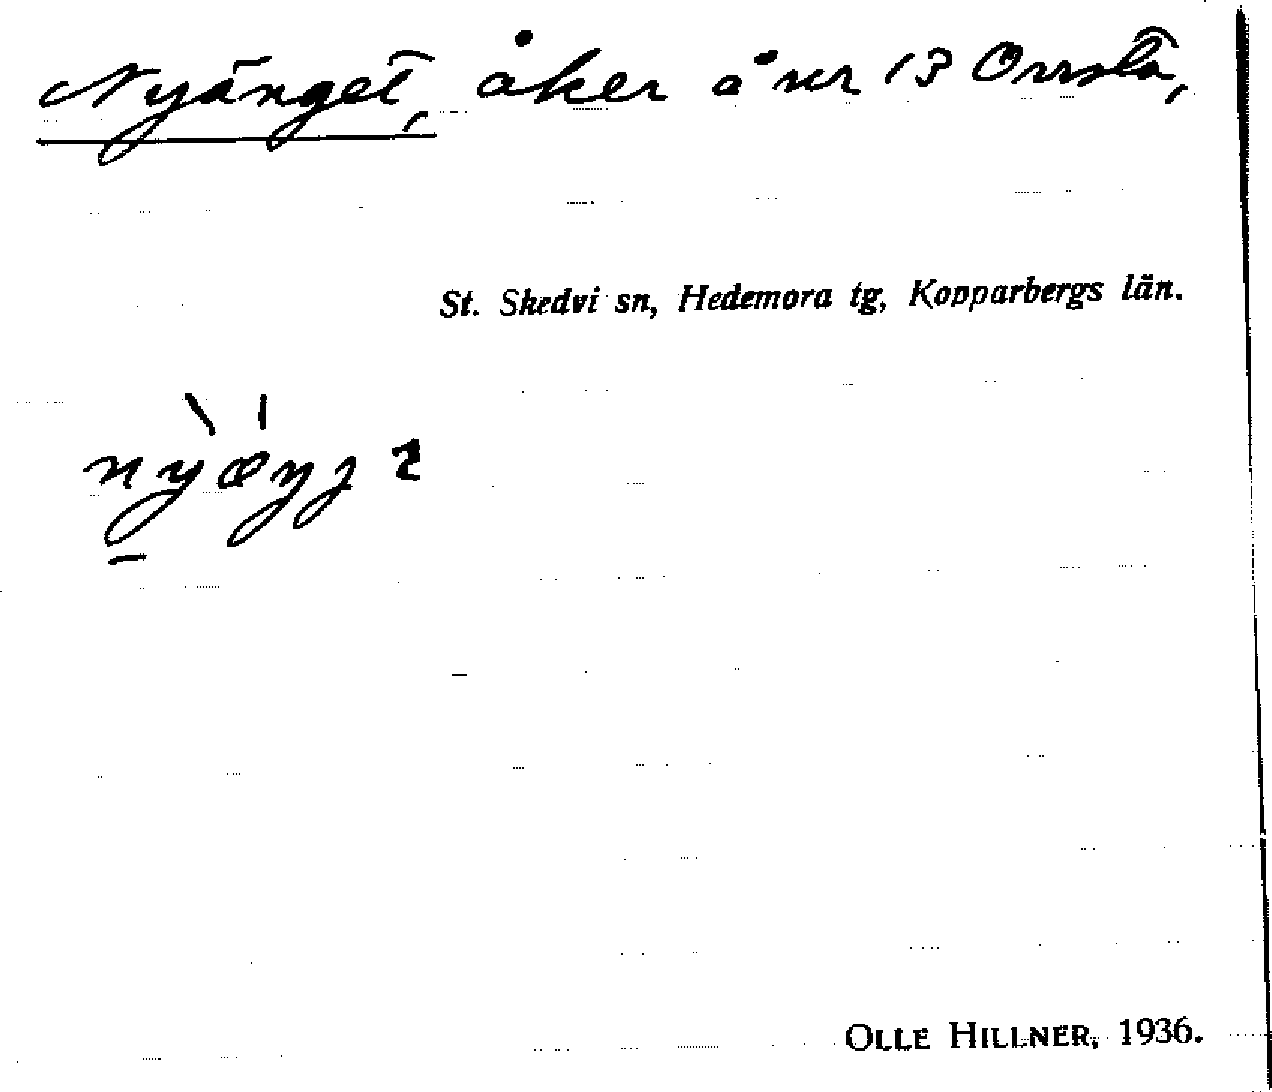 Nyänget, åker å nr 13 Orrsta,
St. Skedvi sn, Hedemora tg, Kopparbergs län.
OLLE HILLNER, 1936.